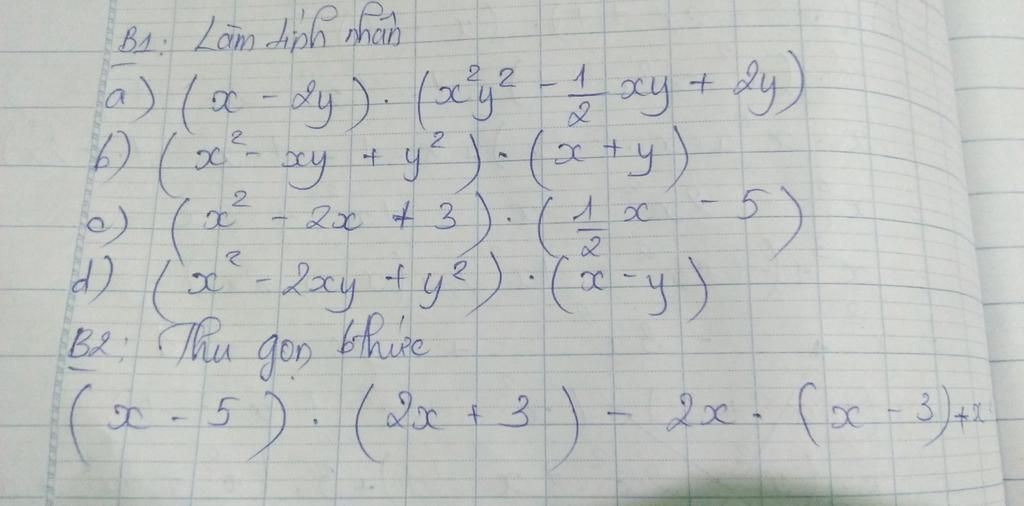 B1: Làm tính nhân
a) (x - 2y) . (x²y² - 1/2 xy + 2y)
b) (x² - xy + y²) . (x + y)
c) (x² - 2x + 3) . (1/2 x - 5)
d) (x² - 2xy + y²) . (x - y)
B2: Thu gọn bthức
(x - 5) . (2x + 3) - 2x . (x - 3) + x